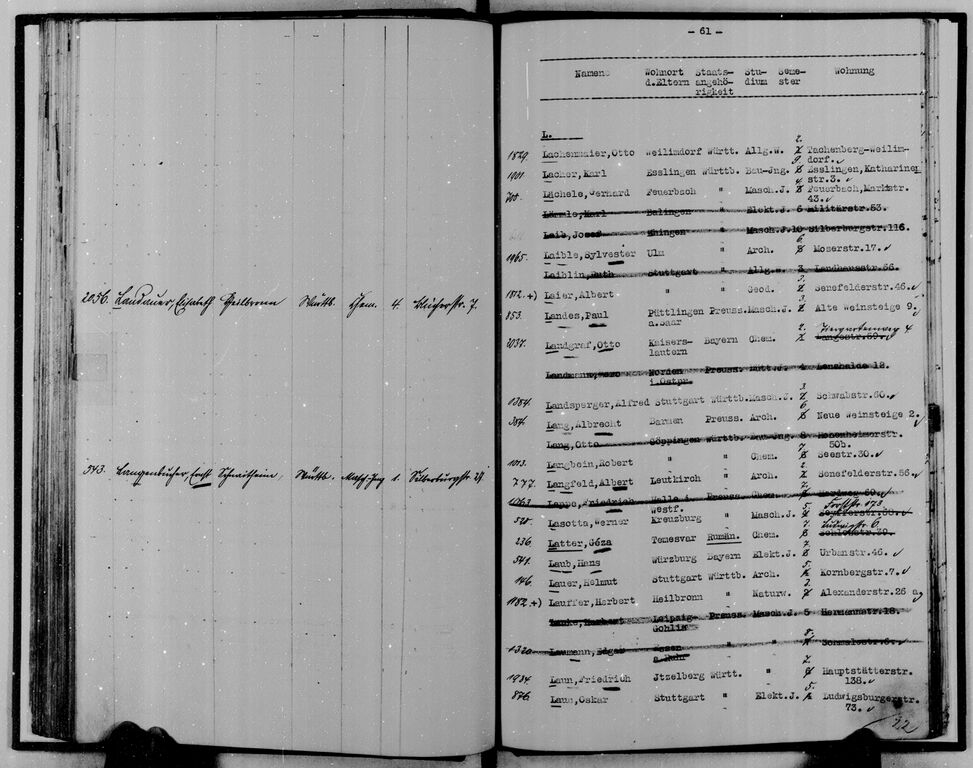 2056. Landauer, Elisabeth Heilbronn Württb. Chem. 4. Blücherstr. 7.
543. Langenbucher, Ernst Schnaitheim, Württb. Masch. Ing 1. Silberburgstr
- 61 -
Namen Wohnort Staats- Stu- Seme- Wohnung
d.Eltern angehö- dium ster
rigkeit
L.
2.
1829. Lachenmaier, Otto Weilimdorf Württ. Allg.W. Tachenberg-Weilim-
9. dorf.
1901. Lacher, Karl Esslingen Württb. Bau-Jng. 8 Esslingen, Katharinen
4 str.3.
705. Lächele, Gerhard Feuerbach " Masch.J. Feuerbach, Marktstr.
43.
Karl Balingen " Elekt.J. 6 Militärstr.53.
Laib, Josef Ehingen " Masch.J.10 Silberburgstr.116.
6.
1965. Laible, Sylvester Ulm " Arch. Moserstr.17.
Laiblin, Ruth Stuttgart " Allg.W. 3 Landhausstr.56.
3.
1812. +) Laier, Albert " " Geod. Senefelderstr.46.
3.
853. Landes, Paul Püttlingen Preuss. Masch.J. Alte Weinsteige 9.
a.Saar
2. Tiergartenweg 4
2037. Landgraf, Otto Kaisers- Bayern Chem. Langestr.59.
lautern
Landmann, Norden Preuss. 4
i.Ostpr.
3.
1384. Landsperger, Alfred Stuttgart Württb. Masch.J. Schwabstr.60.
6
384. Lang, Albrecht Barmen Preuss. Arch. Neue Weinsteige 2.
Lang, Otto Göppingen Württb. Bau-Jng. 8 Hohenheimerstr.
7 50b.
1013. Langbein, Robert " " Chem. Seestr.30.
2.
777. Langfeld, Albert Leutkirch " Arch. Senefelderstr.56
7.
1063 Lappe, Friedrich Halle i. Preuss. Chem.
Westf. 5. Forststr. 173
520. Lasotta, Werner Kreuzburg " Masch.J.
7. Ludwigstr. 6
236. Latter, Géza Temesvar Rumän. Chem. Schloßstr.39.
7.
541. Laub, Hans Würzburg Bayern Elekt.J. 8 Urbanstr.46.
5.
146. Lauer, Helmut Stuttgart Württb. Arch. Kornbergstr.7.
3.
1182. +) Lauffer, Herbert Heilbronn " Naturw. Alexanderstr.26 a
Herbert Leipzig- Preuss. Masch.J. 5 Hermannstr.18.
Gohlis
8.
1320. Laumann, Edgar Essen " "
a.Ruhr
7.
1984. Laun, Friedrich Jtzelberg Württ. " Hauptstätterstr.
5. 138.
876. Laun, Oskar Stuttgart " Elekt.J. Ludwigsburgerstr.
73.
22